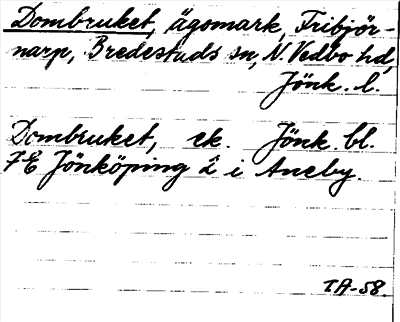 Dombruket, ägomark, Fribjör-
narp, Bredestads sn, N. Vedbo hd,
Jönk. l.
Dombruket, ek. Jönk. bl.
7E Jönköping 2 i Aneby.
TA-58.